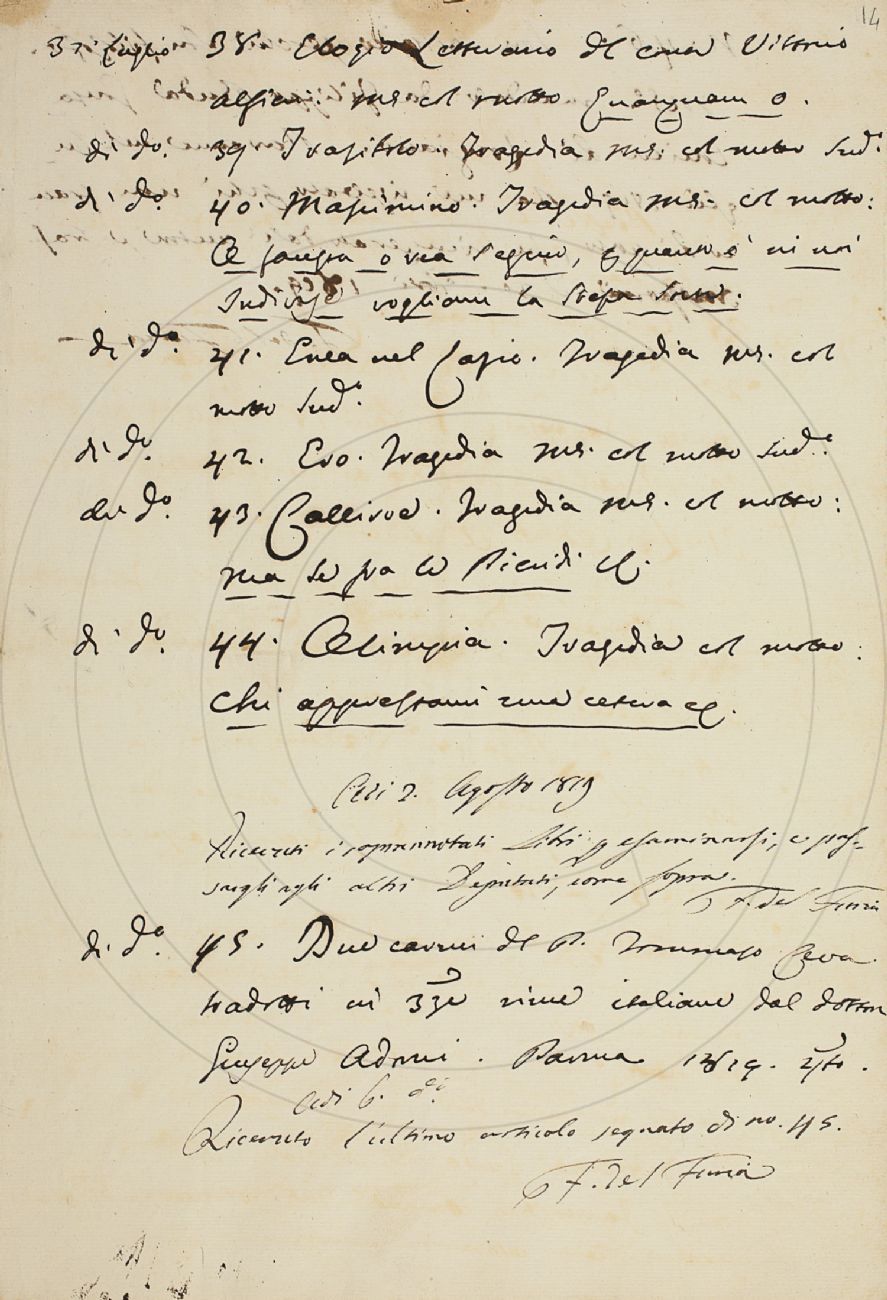 14
31 Luglio 38 Elogio Letterario del conte Vittorio
Alfieri. ms. col motto Quanquam o.
di do. 39 Trasibolo. Tragedia ms. col motto sud.o
di do. 40. Massimino. Tragedia ms. col motto:
O sangra o rea seguio, e quanto è in noi
Indivise vogliam la stessa sorte.
di do. 41. Enea nel Lazio. Tragedia ms. col
motto sud.o
di do. 42. Ero. Tragedia ms. col motto sud.o
di do. 43. Calliroe. Tragedia ms. col motto:
ma se fra le Pieridi &.
di do. 44. Olimpia. Tragedia col motto:
Chi appressami una cetera &.
Adi 2. Agosto 1819
Ricevuti i soprannotati Libri p esaminarsi, e pas-
sargli agli altri Deputati, come sopra.
F. del Furia
di do. 45. Due carmi del P. Tommaso Ceva
tradotti in 33e rime italiane dal dottor
Giuseppe Adorni. Parma 1819. 4to.
Adi 6. do.
Ricevuto l'ultimo articolo segnato di no. 45.
F. del Furia